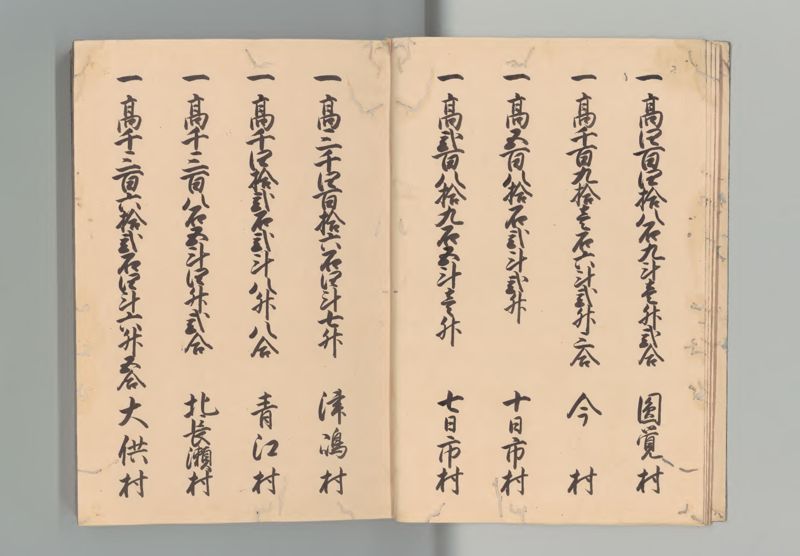 一 高四百四拾八石九斗壱升弐合 圓覚村
一 高千百九拾壱石六斗弐升二合 今村
一 高五百八拾石弐斗弐升 十日市村
一 高弐百八拾九石五斗壱升 七日市村
一 高三千四百拾六石四斗七升 津嶋村
一 高千四拾弐石弐斗八升八合 青江村
一 高千三百八石五斗四升弐合 北長瀬村
一 高千三百六拾弐石四斗六升五合 大供村